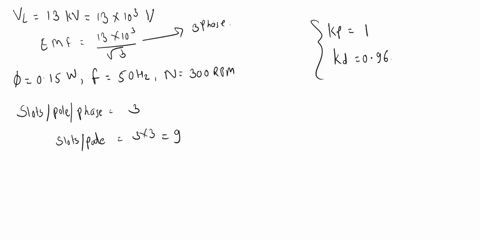 VL = 13 kV = 13 × 10³ V
Emf = 13 × 10³ / √3 → 3 phase.
ϕ = 0.15 W, f = 50 Hz, N = 300 RPM
Slots/pole/phase = 3
Slots/pole = 3×3 = 9
{ kp = 1
kd = 0.96